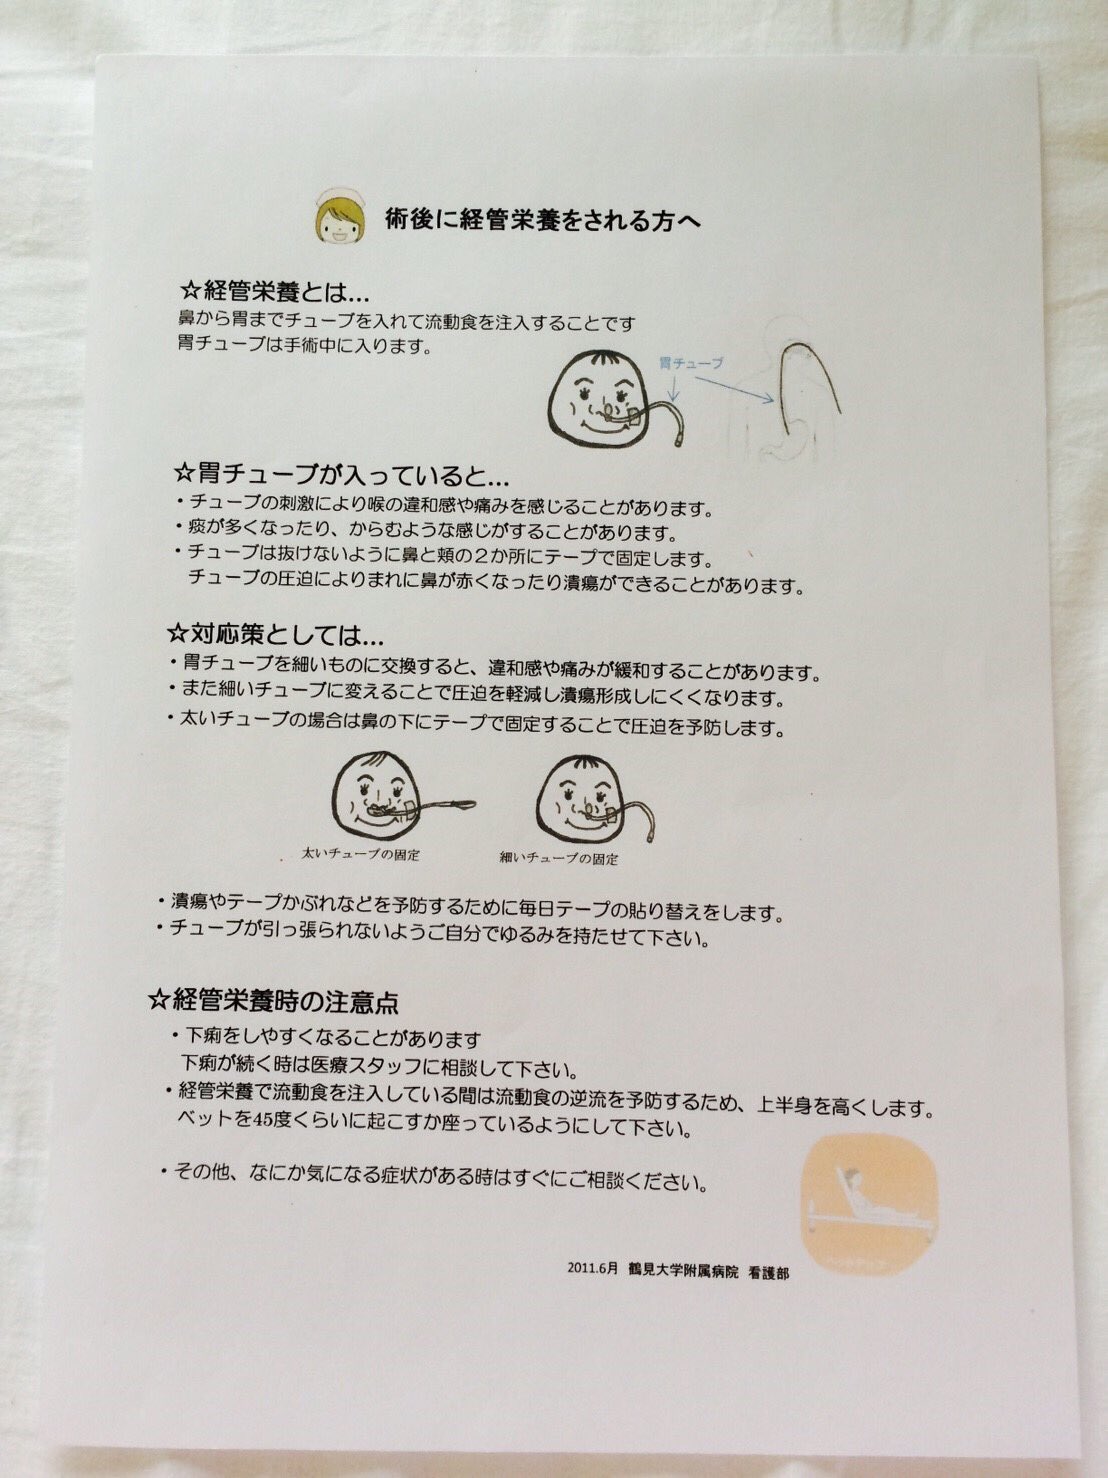 術後に経管栄養をされる方へ
☆経管栄養とは…
鼻から胃までチューブを入れて流動食を注入することです
胃チューブは手術中に入ります。
胃チューブ
☆胃チューブが入っていると…
・チューブの刺激により喉の違和感や痛みを感じることがあります。
・痰が多くなったり、からむような感じがすることがあります。
・チューブは抜けないように鼻と頬の２か所にテープで固定します。
チューブの圧迫によりまれに鼻が赤くなったり潰瘍ができることがあります。
☆対応策としては…
・胃チューブを細いものに交換すると、違和感や痛みが緩和することがあります。
・また細いチューブに変えることで圧迫を軽減し潰瘍形成しにくくなります。
・太いチューブの場合は鼻の下にテープで固定することで圧迫を予防します。
太いチューブの固定
細いチューブの固定
・潰瘍やテープかぶれなどを予防するために毎日テープの貼り替えをします。
・チューブが引っ張られないようご自分でゆるみを持たせて下さい。
☆経管栄養時の注意点
・下痢をしやすくなることがあります
下痢が続く時は医療スタッフに相談して下さい。
・経管栄養で流動食を注入している間は流動食の逆流を予防するため、上半身を高くします。
ベットを45度くらいに起こすか座っているようにして下さい。
・その他、なにか気になる症状がある時はすぐにご相談ください。
2011.6月 鶴見大学附属病院 看護部